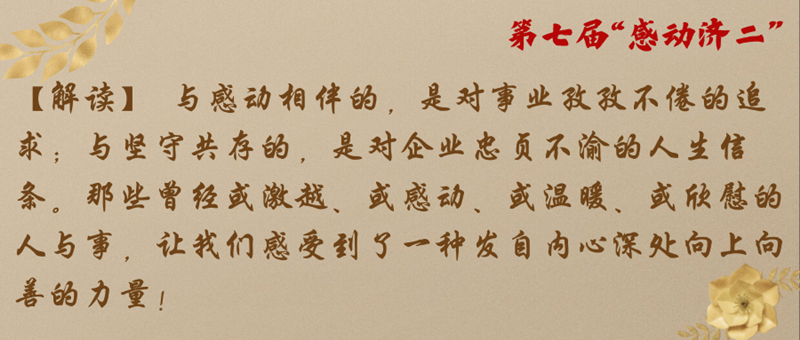 第七届“感动济二”
【解读】 与感动相伴的，是对事业孜孜不倦的追
求；与坚守共存的，是对企业忠贞不渝的人生信
条。那些曾经或激越、或感动、或温暖、或欣慰的
人与事，让我们感受到了一种发自内心深处向上向
善的力量！